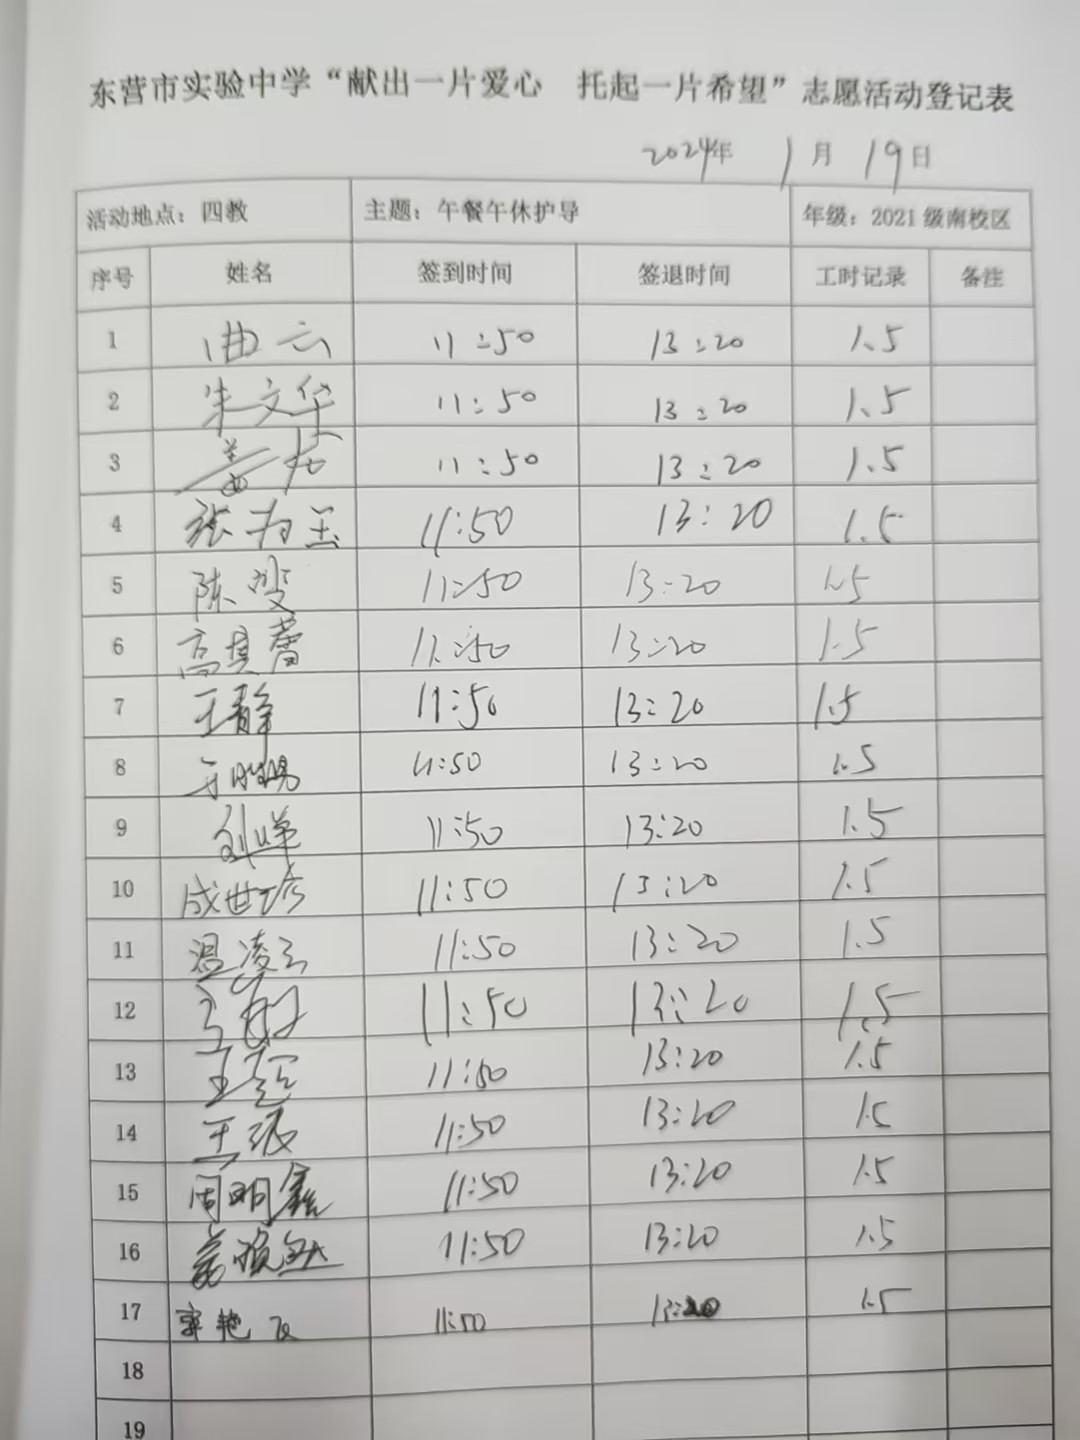 东营市实验中学“献出一片爱心 托起一片希望”志愿活动登记表
2024年 1月 19日
活动地点：四教 主题：午餐午休护导 年级：2021级南校区
序号 姓名 签到时间 签退时间 工时记录 备注
1 曲云 11:50 13:20 1.5
2 朱文华 11:50 13:20 1.5
3 11:50 13:20 1.5
4 张为玉 11:50 13:20 1.5
5 陈雯 11:50 13:20 1.5
6 高真蕾 11:50 13:20 1.5
7 王静 11:50 13:20 1.5
8 11:50 13:20 1.5
9 11:50 13:20 1.5
10 成世珍 11:50 13:20 1.5
11 温凌云 11:50 13:20 1.5
12 11:50 13:20 1.5
13 王超 11:50 13:20 1.5
14 11:50 13:20 1.5
15 周明鑫 11:50 13:20 1.5
16 11:50 13:20 1.5
17 11:50 13:20 1.5
18
19